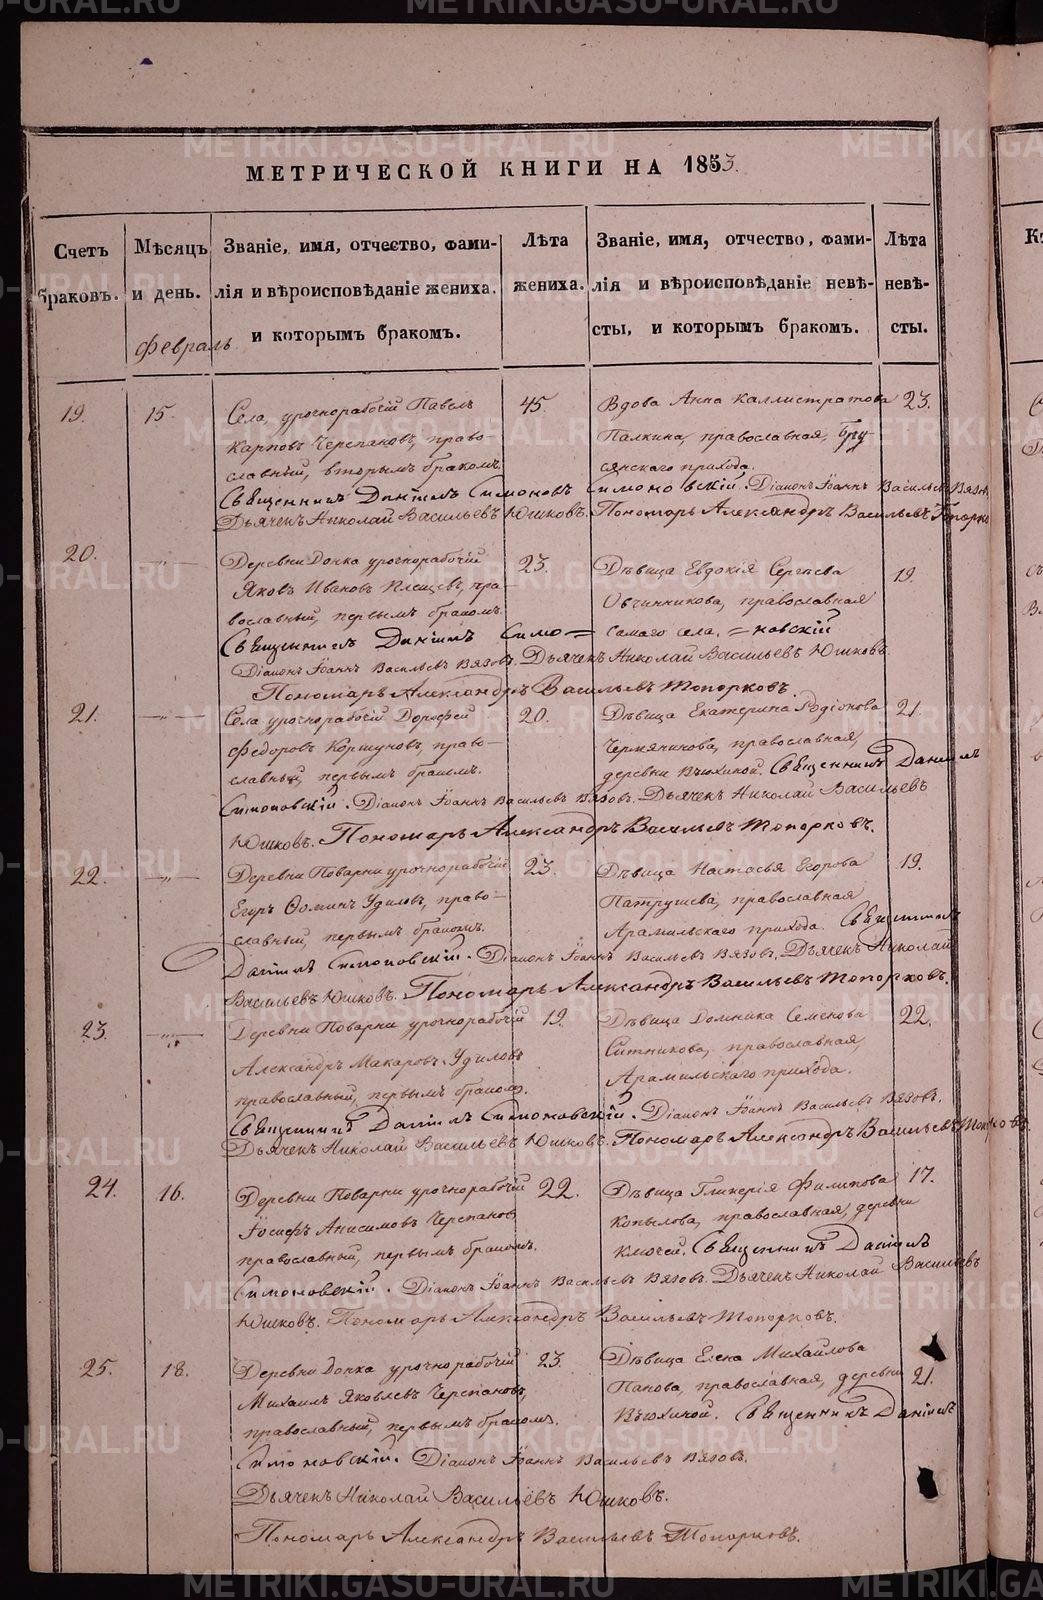 МЕТРИЧЕСКОЙ КНИГИ НА 1853.
Счетъ браковъ.
Мѣсяцъ и день.
Званіе, имя, отчество, фами-
лія и вѣроисповѣданіе жениха.
и которымъ бракомъ.
Лѣта
жениха.
Званіе, имя, отчество, фами-
лія и вѣроисповѣданіе невѣ-
сты, и которымъ бракомъ.
Лѣта
невѣ-
сты.
Февраль
19. 15. Села, урочнорабочій Павелъ 45. Вдова Анна Каллистратова 23.
Карповъ Черепановъ, право- Палкина, православная, Бру-
славный, вторымъ бракомъ. сянскаго прихода.
Священникъ Даніилъ Симоновскій. Діаконъ Іоаннъ Васильевъ Вязов
Дьячекъ Николай Васильевъ Юшковъ. Пономарь Александръ Васильевъ Топорко
20. —"— Деревни Донка урочнорабочій 23. Дѣвица Евдокія Сергѣева 19.
Яковъ Ивановъ Плещевъ, пра- Овчинникова, православная
вославный, первымъ бракомъ. самаго села.
Священникъ Даніилъ Симо= =новскій
Діаконъ Іоаннъ Васильевъ Вязовъ. Дьячекъ Николай Васильевъ Юшковъ.
Пономарь Александръ Васильевъ Топорковъ.
21. —"— Села урочнорабочій Дорофей 20. Дѣвица Екатерина Родіонова 21.
Федоровъ Коршуновъ, право- Чермянинова, православная,
славный, первымъ бракомъ. деревни Вьюхиной. Священникъ Даніилъ
Симоновскій. Діаконъ Іоаннъ Васильевъ Вязовъ. Дьячекъ Николай Васильевъ
Юшковъ. Пономарь Александръ Васильевъ Топорковъ.
22. —"— Деревни Поварни урочнорабочій 23. Дѣвица Настасья Егорова 19.
Егоръ Ѳоминъ Удиловъ, право- Патрушева, православная
славный, первымъ бракомъ. Арамильскаго прихода. Священникъ
Даніилъ Симоновскій. Діаконъ Іоаннъ Васильевъ Вязовъ. Дьячекъ Николай
Васильевъ Юшковъ. Пономарь Александръ Васильевъ Топорковъ.
23. —"— Деревни Поварни урочнорабочій 19. Дѣвица Домника Семенова 22.
Александръ Макаровъ Удиловъ Ситникова, православная,
православный, первымъ бракомъ. Арамильскаго прихода.
Священникъ Даніилъ Симоновскій. Діаконъ Іоаннъ Васильевъ Вязовъ.
Дьячекъ Николай Васильевъ Юшковъ. Пономарь Александръ Васильевъ Топорковъ.
24. 16. Деревни Поварни урочнорабочій 22. Дѣвица Гликерія Филипова 17.
Іосифъ Анисимовъ Черепановъ Копылова, православная, деревни
православный, первымъ бракомъ. Ключей. Священникъ Даніилъ
Симоновскій. Діаконъ Іоаннъ Васильевъ Вязовъ. Дьячекъ Николай Васильевъ
Юшковъ. Пономарь Александръ Васильевъ Топорковъ.
25. 18. Деревни Донка урочнорабочій 23. Дѣвица Елена Михайлова
Михаилъ Яковлевъ Черепановъ, Панова, православная, деревни 21.
православный, первымъ бракомъ. Вьюхиной. Священникъ Даніилъ
Симоновскій. Діаконъ Іоаннъ Васильевъ Вязовъ.
Дьячекъ Николай Васильевъ Юшковъ.
Пономарь Александръ Васильевъ Топорковъ.
METRIKI.GASO-URAL.RU